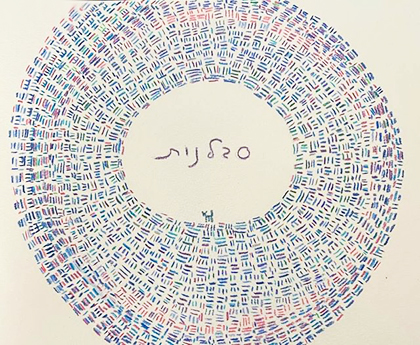 סבלנות